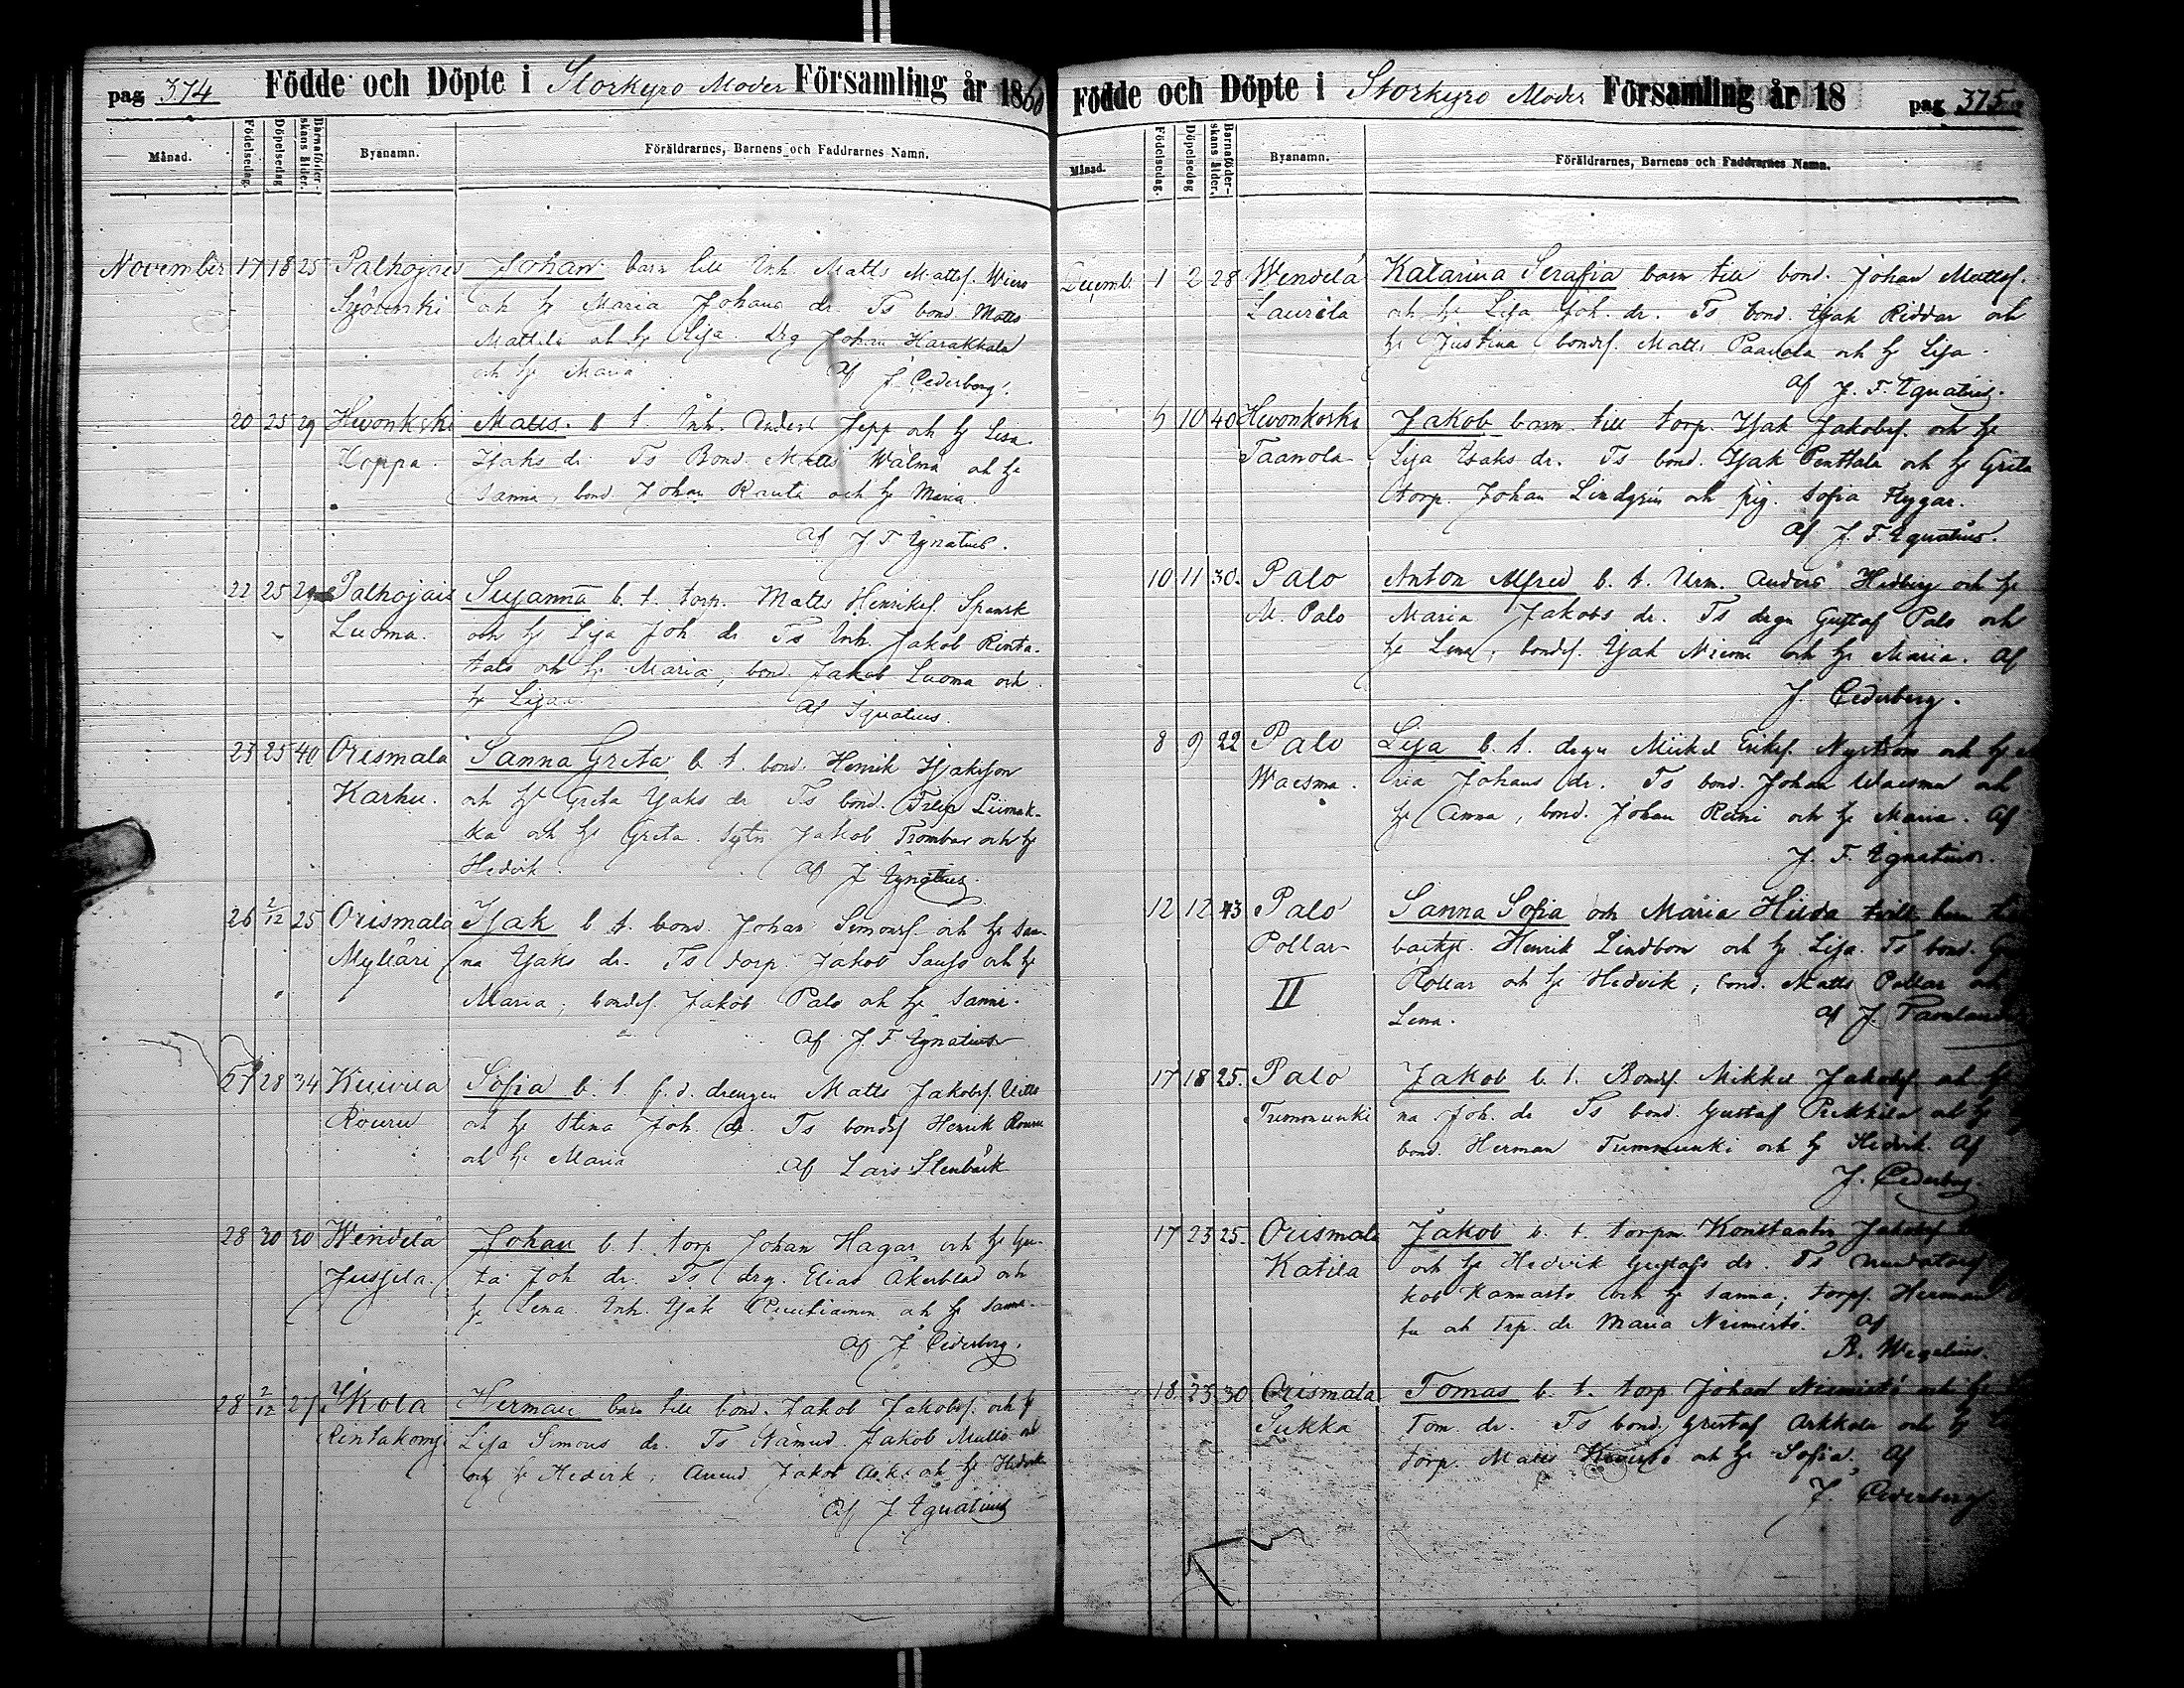 pag 374 Födde och Döpte i Storkyro Moder Församling år 1860
Månad. Födelsedag. Döpelsedag Barnaföderskans ålder. Byanamn. Föräldrarnes, Barnens och Faddrarnes Namn.
November 17 18 25 Palhojais Johan barn till Inh. Matts Mattsf.
och hu Maria Johans dr. Ts bond Matts
Mattila och hu Lisa. Drg Johan Harakkala
och hu Maria af J. Cederberg.
20 25 29 Matts. b. t. Inh. Jepp och hu Lisa
Koppa. Isaks dr. Ts Bond. Matts Walma och hu
Sanna, bond Johan Rauta och hu Maria.
af J F Ignatius.
22 25 29 Palhojais Susanna b. t. torp. Matts Henriksf. Spansk
Luoma. och hu Lisa Joh dr Ts Inh. Jakob Rinta-
talo och hu Maria, bond Jakob Luoma och
hu Lisa. af Ignatius.
23 25 40 Orismala Sanna Greta b. t. bond. Henrik Isaksson
Karhu. och hu Greta Isaks dr Ts bond. Filip Liimak-
ka och hu Greta. Jakob Trombar och hu
Hedvik. af J Ignatius.
26 2/12 25 Orismala Isak b. t. bond. Johan Simonsf. och hu San-
Myllari na Isaks dr. Ts torp. Jakob och hu
Maria, bondsf. Jakob Palo och hu Sanna.
af J. F Ignatius
27 28 34 Kuivila Sofia b. t. f. d. drengen Matts Jakobsf.
Rouru och hu Stina Joh. dr. Ts bondsf Henrik Rouru
och hu Maria af Lars Stenbäck
28 30 30 Wendelä Johan b. t. torp Johan Hagar och hu Gre-
Jussila. ta Joh dr. Ts drg. Elias Åkerblad och
hu Lena. Inh. Isak och hu Sanna.
af J Cederberg.
28 2/12 27 Ikola Herman barn till bond. Jakob Jakobsf. och hu
Lisa Simons dr. Ts Jakob
och hu Hedvik, Jakob och hu Hedvik
af J Ignatius
Födde och Döpte i Storkyro Moder Församling år 18 pag 375
Månad. Födelsedag. Döpelsedag Barnaföderskans ålder. Byanamn. Föräldrarnes, Barnens och Faddrarnes Namn.
Decemb. 1 2 28 Wendelä Katarina Serafia barn till bond. Johan Mattsf.
Laurila och hu Lisa Joh. dr. Ts bond. Isak Riddar och
hu Justina, bondsf. Matts Paavola och hu Lisa.
af J. F. Ignatius.
5 10 40 Hevonkoski Jakob barn till torp. Isak Jakobsf. och hu
Taanola Lisa Isaks dr. Ts bond. Isak Penttala och hu Greta
torp. Johan Lindgrén och pig. Sofia Flygar.
af J. F. Ignatius.
10 11 30. Palo Anton Alfred b. t. Urm. Anders Hedberg och hu
M. Palo Maria Jakobs dr. Ts drgn Gustaf Palo och
hu Lena, bondsf. Isak Niemi och hu Maria. af
J. Cederberg.
8 9 22 Palo Lisa b. t. drgn Mickel Eriksf. Nyström och hu Ma
Waesma. ria Johans dr. Ts bond. Johan Waesma och
hu Anna, bond. Johan Reini och hu Maria. af
J. F. Ignatius.
12 12 43 Palo Sanna Sofia och Maria Hilda tvill. barn
Pollari Henrik Lindbom och hu Lisa. Ts bond.
II Pollar och hu Hedvik, bond. Matts Pollar och
Lena. af J.
17 18 25. Palo Jakob b. t. Bondsf. Mikkel Jakobsf. och hu
Tummunki na Joh. dr Ts bond. Gustaf Pukkila och hu
bond. Herman Tummunki och hu Hedvik. af
J. Cederberg.
17 23 25. Orismala Jakob b. t. torpn Konstantin Jakobsf
Katila och hu Hedvik Gustafs dr. Ts
kob Kannasto och hu Sanna, torpf. Herman
och trp. dr Maria Niemistö. af
R. Wegelius.
18. 23 30 Orismala Tomas b. t. torp Johan Niemistö och hu
Sukka Tom. dr. Ts bond. Gustaf Arkkola och hu
torp. Matts Kivistö och hu Sofia. af
J. Cederberg